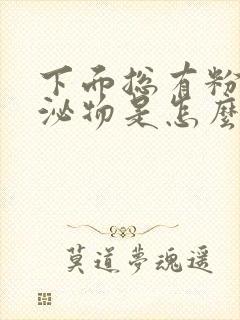 下而总有粉
泌物是怎麼
莫道夢魂遥